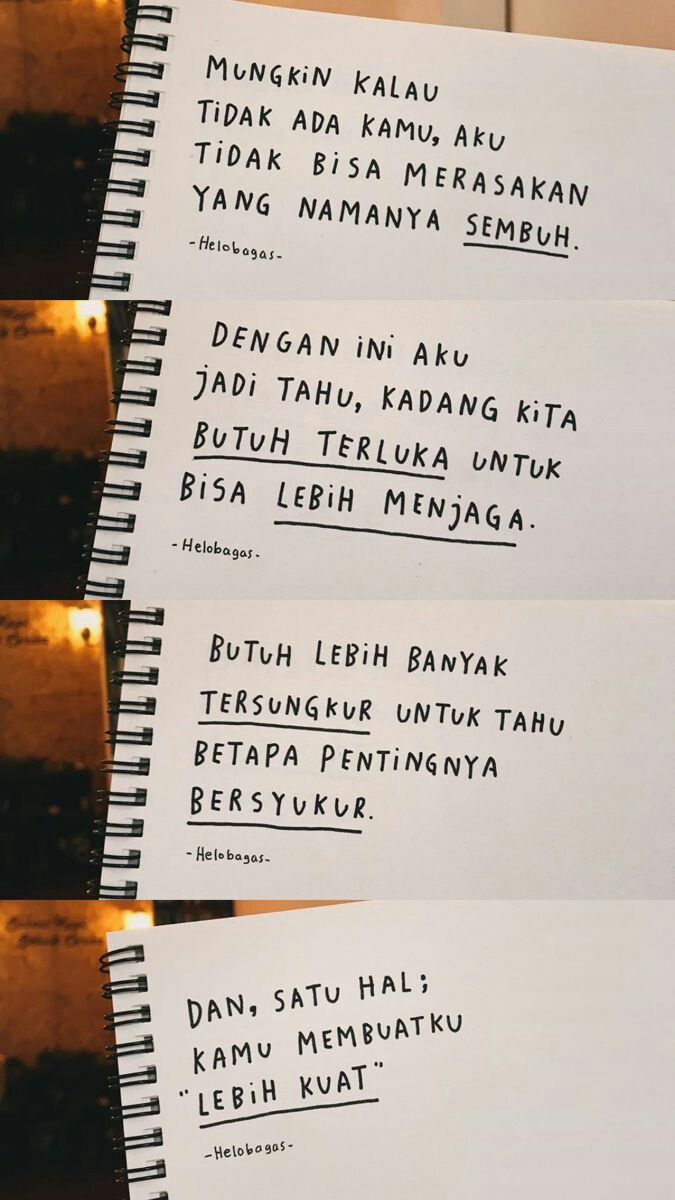 MUNGKIN KALAU
TIDAK ADA KAMU, AKU
TIDAK BISA MERASAKAN
YANG NAMANYA SEMBUH.
-Helobagas-
DENGAN INI AKU
JADI TAHU, KADANG KITA
BUTUH TERLUKA UNTUK
BISA LEBIH MENJAGA.
-Helobagas-
BUTUH LEBIH BANYAK
TERSUNGKUR UNTUK TAHU
BETAPA PENTINGNYA
BERSYUKUR.
-Helobagas-
DAN, SATU HAL;
KAMU MEMBUATKU
"LEBIH KUAT"
-Helobagas-